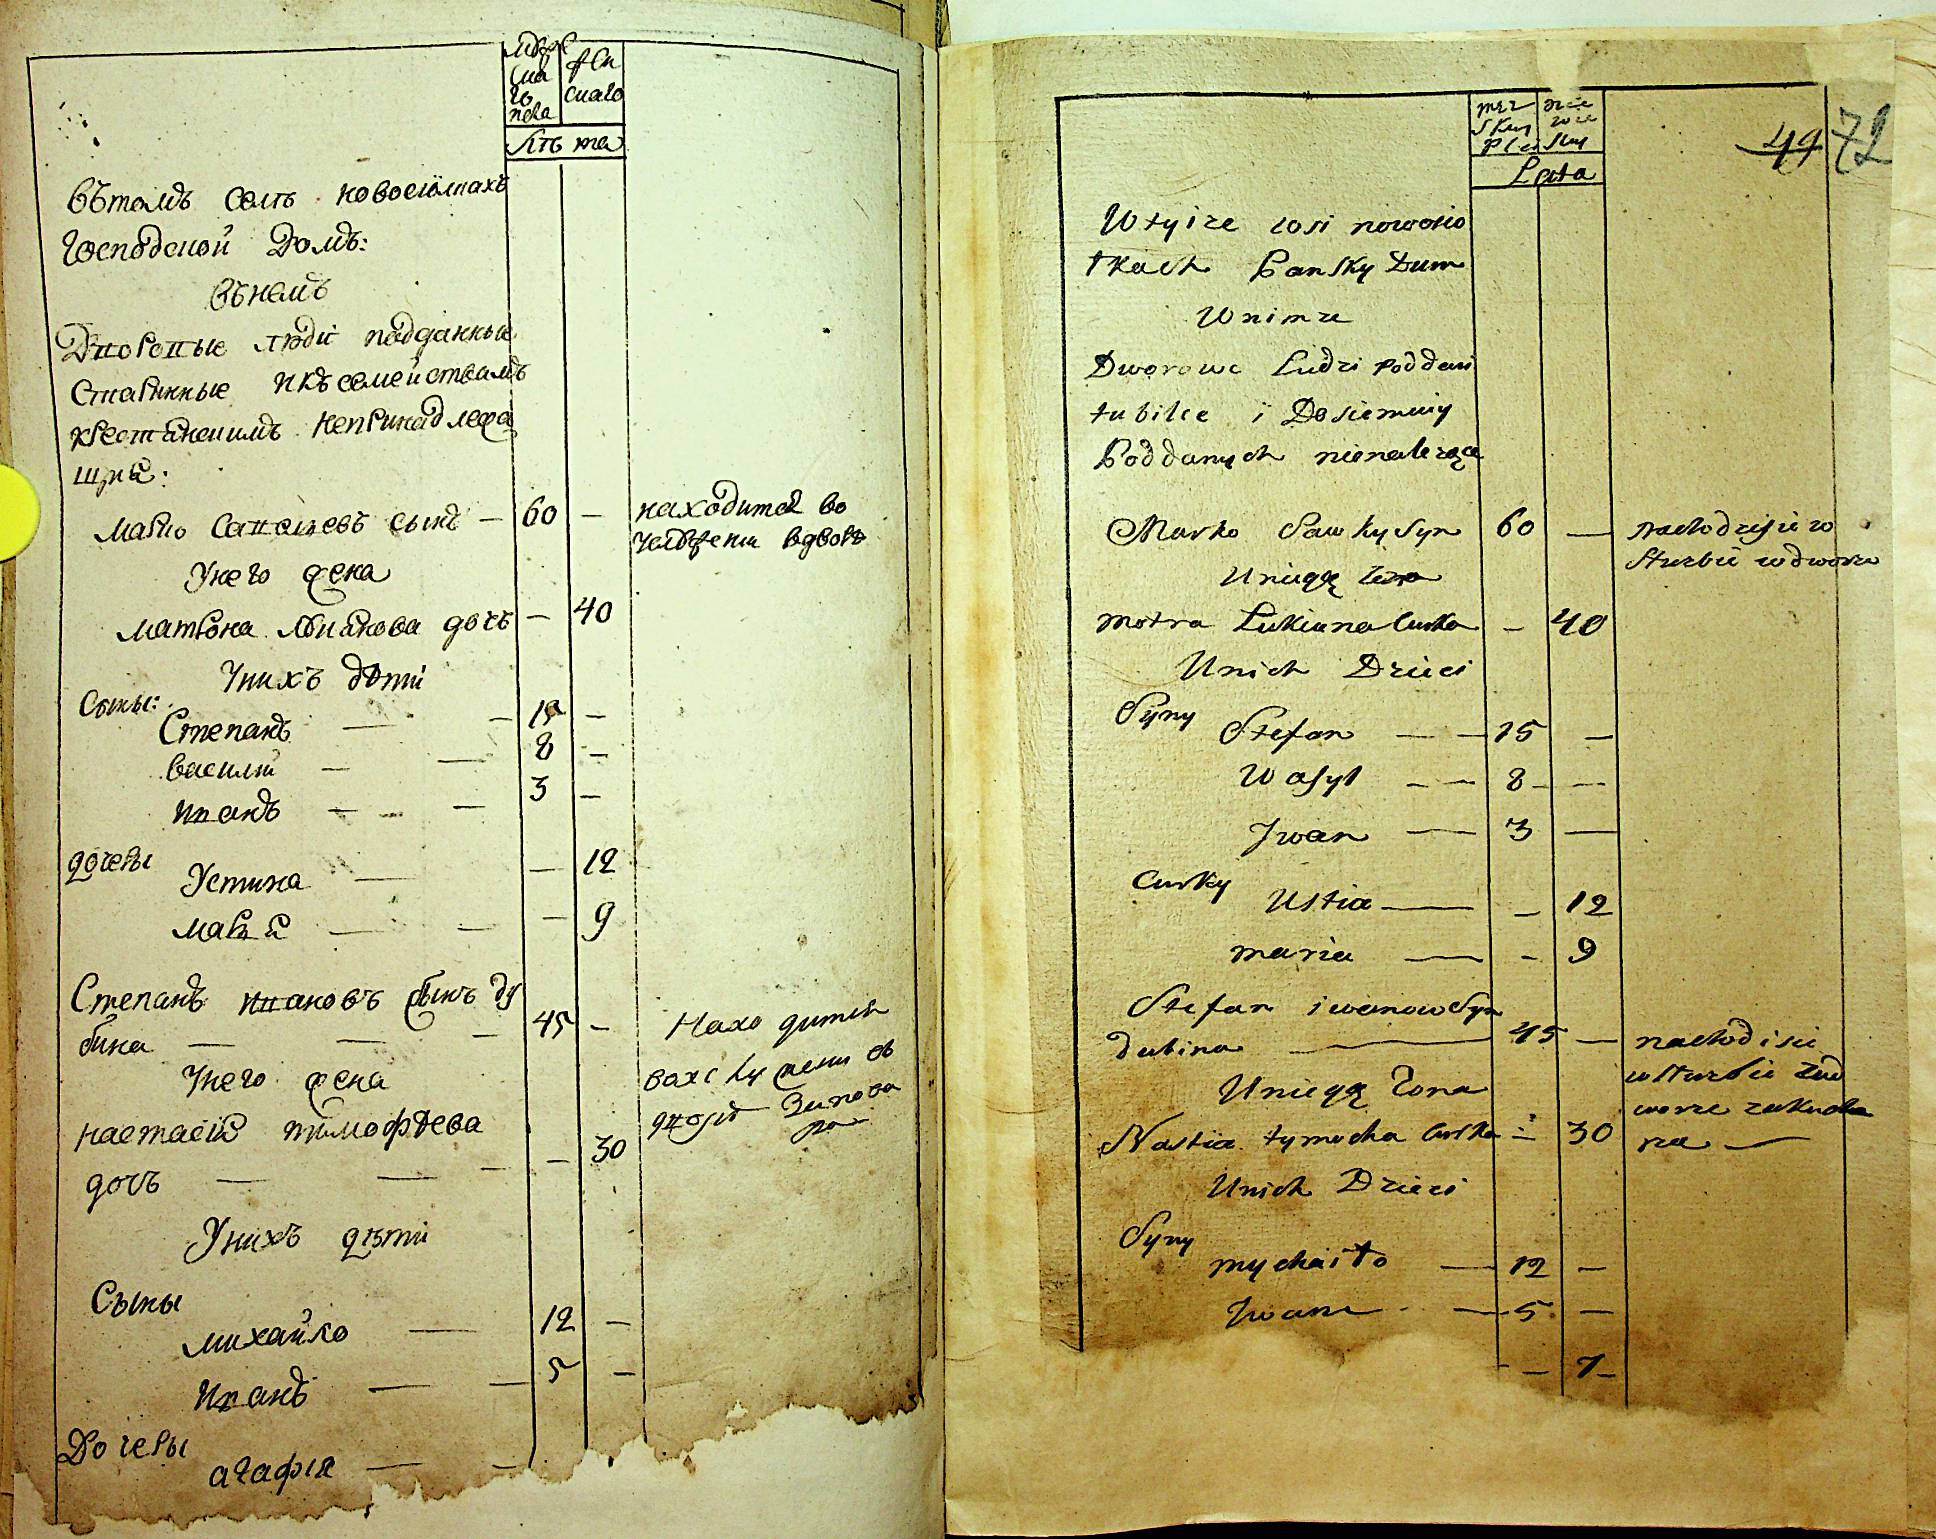 мужс
ска
го
пола
жен
скаго
лѣ та
Въ томъ селѣ новосіолкахъ
Господской Домъ:
въ немъ
Дворовые люди подданные
Старинные и къ семействамъ
крестянскимъ непринадлежа
щие:
марко Савельевъ сынъ — 60 — находится во
услужении вдворѣ
У него жена
матрона лукянова дочь — 40
У нихъ дѣти
Сыны:
Степанъ — — 15 —
василий — — 8 —
иванъ — — 3 —
дочеры
Устина — — 12
мария — — — 9
Степанъ ивановъ сынъ ду
бина — — — 45 — Находится
У него жена
настасія тимофѣева
дочь — — — — 30
У нихъ дѣти
Сыны
михайло — 12 —
иванъ — — 5 —
Дочеры
агафия — —
49 72
męz
skey
plci
Lata
W tyize wsi nowosio
łkach Pansky Dum
W nimze
Dworowe Ludzi poddani
Poddanych nienalezące
Marko Sawky Syn 60 — nachodzisie w
słuzbie wdworze
Uniegę zona
motra Lukiana Curka — 40
Unich Dzieci
Syny
Stefan — — 15 —
Wasyl — — 8 — —
Jwan — 3 —
Curky
Ustia — — 12
maria — — 9
Stefan iwanow Syn
dubina — 45 — nachodisie
wsłuzbie
Uniegę Zona
Nastia tymocha Curka — 30
Unich Dzieci
Syny
mychaiło — 12 —
Jwan — 5 —
— 7 —